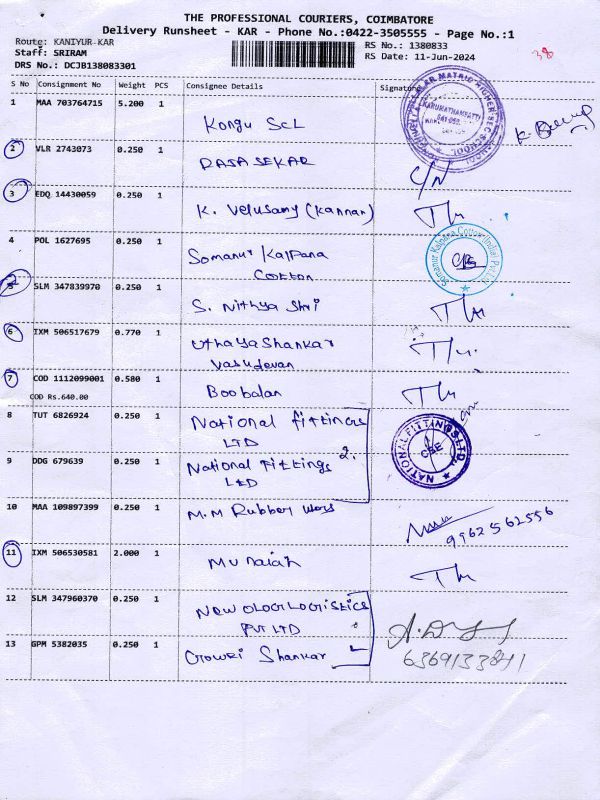 THE PROFESSIONAL COURIERS, COIMBATORE
Delivery Runsheet - KAR - Phone No.:0422-3505555 - Page No.:1
Route: KANIYUR-KAR
RS No.: 1380833
38
Staff: SRIRAM
RS Date: 11-Jun-2024
DRS No.: DCJB138083301
S No Consignment No Weight PCS Consignee Details Signature
1 MAA 703764715 5.200 1 Kongu Scl
2 VLR 2743073 0.250 1 RAJASEKAR C/N
3 EDQ 14430059 0.250 1 K. Velusamy (Kannan)
4 POL 1627695 0.250 1 Somanur Kalpana
Cotton
Somanur Kalpana Cotton (India) Pvt Ltd
5 SLM 347839970 0.250 1 S. Nithya Shri
6 IXM 506517679 0.770 1 Uthayashankar
Vasudevan
7 COD 1112099001 0.580 1 Boobalan
COD Rs.640.00
8 TUT 6826924 0.250 1 National fittings
LTD
NATIONAL FITTINGS LTD.
CBE
9 DDG 679639 0.250 1 National Fittings 2.
LTD
10 MAA 109897399 0.250 1 M.M Rubber
9962562556
11 IXM 506530581 2.000 1 Munaiah
12 SLM 347960370 0.250 1 New
PVT LTD
13 GPM 5382035 0.250 1 Gowri Shankar
6369133841